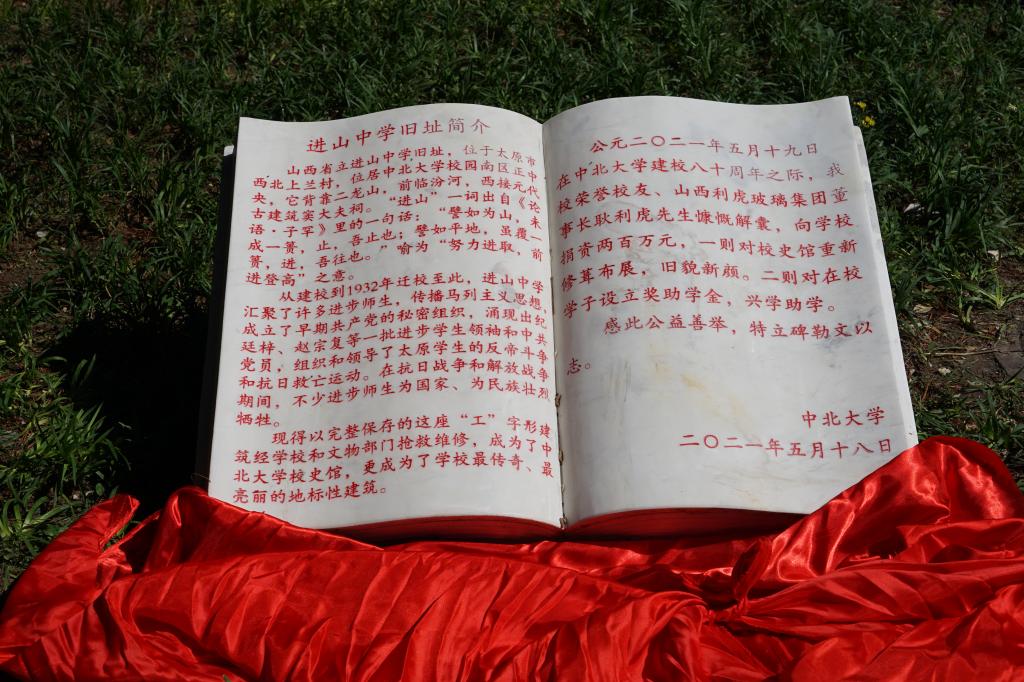 进山中学旧址简介
山西省立进山中学旧址，位于太原市
西北上兰村，位居中北大学校园南区正中
央，它背靠二龙山，前临汾河，西接元代
古建筑窦大夫祠。“进山”一词出自《论
语·子罕》里的一句话：“譬如为山，未
成一篑，止，吾止也；譬如平地，虽覆一
篑，进，吾往也。”喻为“努力进取，前
进登高”之意。
从建校到1932年迁校至此，进山中学
汇聚了许多进步师生，传播马列主义思想，
成立了早期共产党的秘密组织，涌现出纪
廷梓、赵宗复等一批进步学生领袖和中共
党员，组织和领导了太原学生的反帝斗争
和抗日救亡运动。在抗日战争和解放战争
期间，不少进步师生为国家、为民族壮烈
牺牲。
现得以完整保存的这座“工”字形建
筑经学校和文物部门抢救维修，成为了中
北大学校史馆，更成为了学校最传奇、最
亮丽的地标性建筑。
公元二〇二一年五月十九日
在中北大学建校八十周年之际，我
校荣誉校友、山西利虎玻璃集团董
事长耿利虎先生慷慨解囊，向学校
捐资两百万元，一则对校史馆重新
修葺布展，旧貌新颜。二则对在校
学子设立奖助学金，兴学助学。
感此公益善举，特立碑勒文以
志。
中北大学
二〇二一年五月十八日